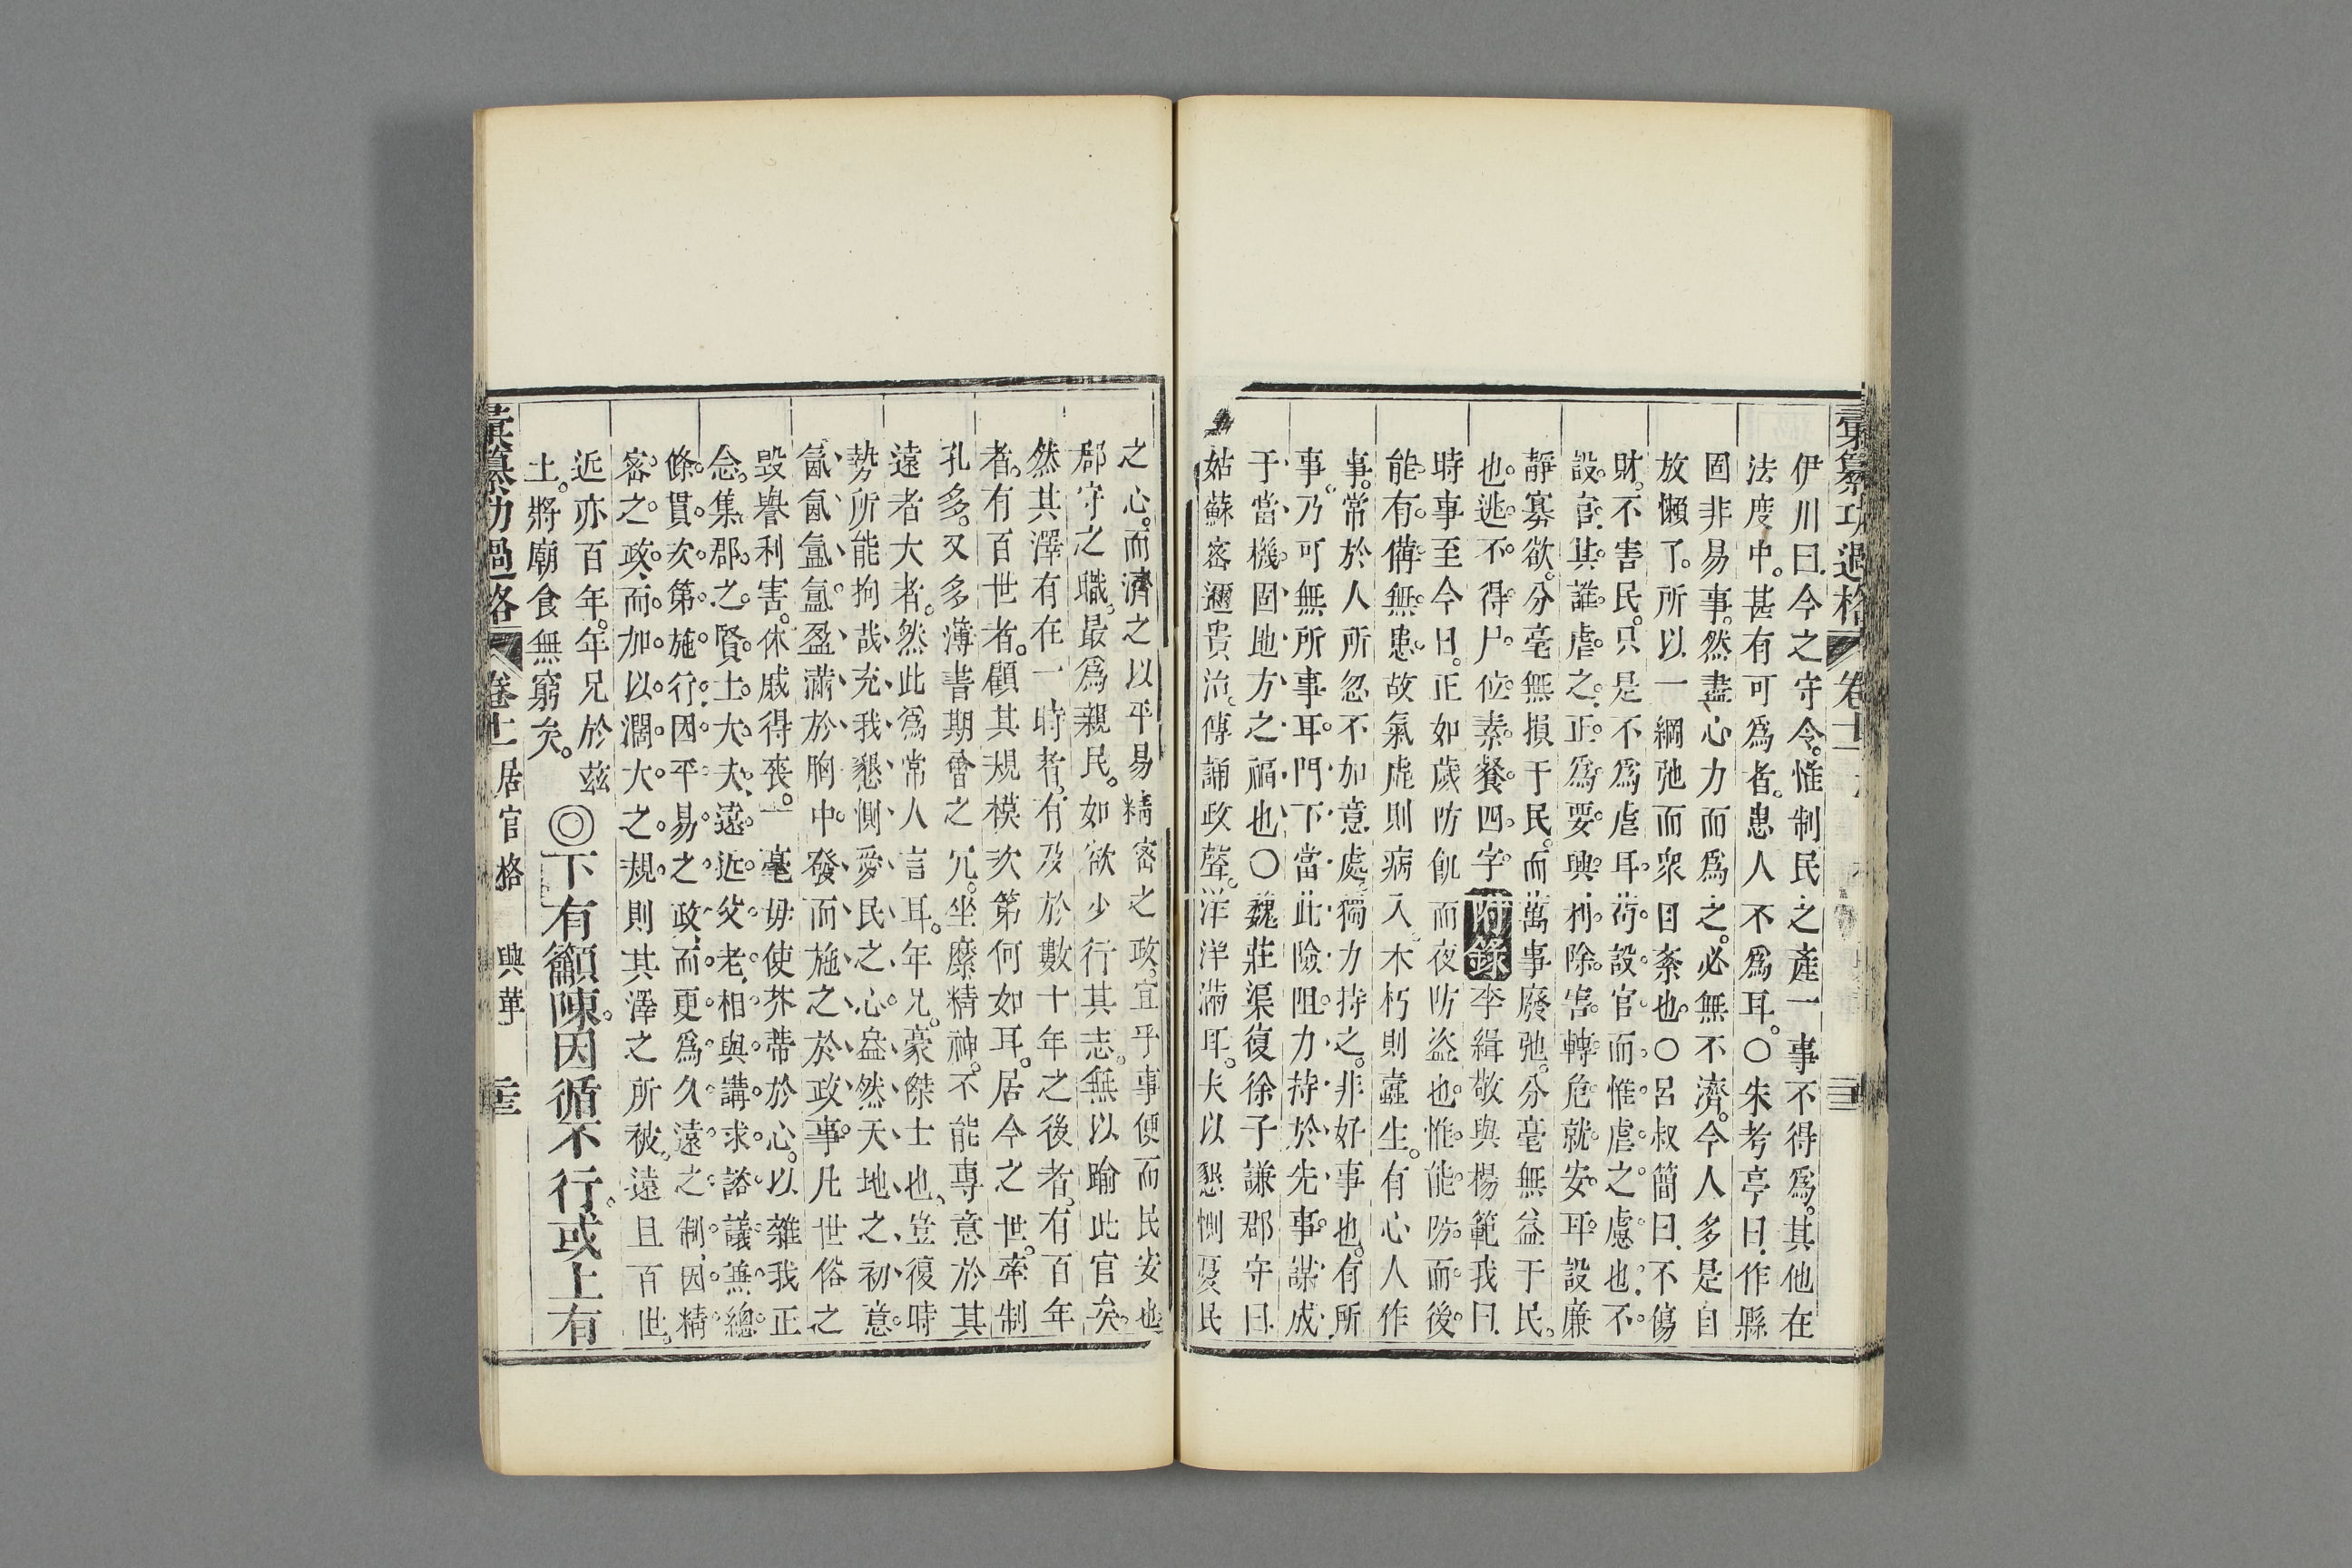 彙纂功過格 卷十一
伊川曰今之守令惟制民之產一事不得為其他在
法度中甚有可為者患人不為耳〇朱考亭曰作縣
固非易事然盡心力而為之必無不濟今人多是自
放懶了所以一綱弛而衆目紊也〇呂叔簡曰不傷
財不害民只是不為虐耳苟設官而惟虐之慮也不
設官其誰虐之正為要興利除害轉危就安耳設廉
靜寡欲分毫無損于民而萬事廢弛分毫無益于民
也逃不得尸位素餐四字附錄李緝敬與楊範我曰
時事至今日正如歲防飢而夜防盜也惟能防而後
能有備無患故氣虛則病入木朽則蠹生有心人作
事常於人所忽不加意處獨力持之非好事也有所
事乃可無所事耳門下當此險阻力持於先事謀成
于當機固地方之福也〇魏莊渠復徐子謙郡守曰
姑蘇密邇貴治傳誦政聲洋洋滿耳夫以懇惻憂民
之心而濟之以平易精密之政宜乎事便而民安也
郡守之職最為親民如欲少行其志無以踰此官矣
然其澤有在一時者有及於數十年之後者有百年
者有百世者顧其規模次第何如耳居今之世牽制
孔多又多薄書期會之冗坐縻精神不能專意於其
遠者大者然此為常人言耳年兄豪傑士也豈復時
勢所能拘哉充我懇惻愛民之心盎然天地之初意
氤氳氳氳盈滿於胸中發而施之於政事凡世俗之
毀譽利害休戚得喪一毫毋使芥蔕於心以雜我正
念集郡之賢士大夫遠近父老相與講求諮議無總
條貫次第施行因平易之政而更為久遠之制因精
密之政而加以濶大之規則其澤之所被遠且百世
近亦百年年兄於茲
土將廟食無窮矣◎下有籲陳因循不行或上有
彙纂功過格 卷十一 居官格 興革